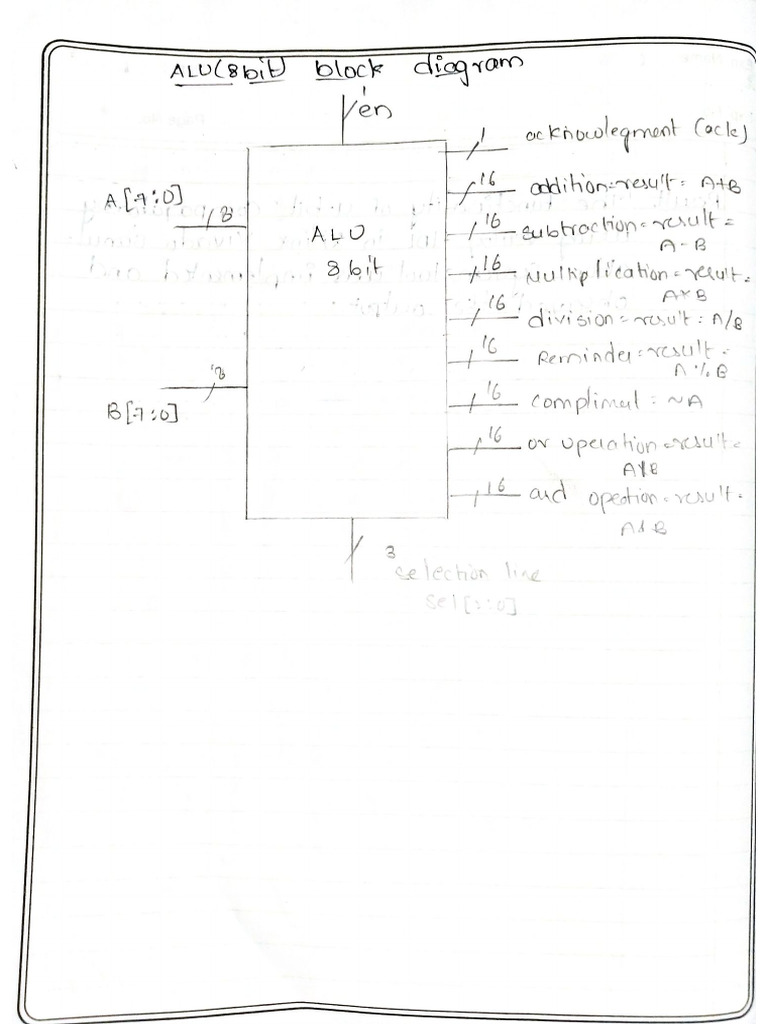 ALU(8bit) block diagram
1
en
1 acknowlegment (ack)
A[7:0]
8
16 addition=result= A+B
16 subtraction=result=
A-B
ALU
8 bit
16 Multiplication=result=
A*B
16 division=result= A/B
16 Reminder=result=
A%B
8
B[7:0]
16 complimet = ~A
16 or operation=result=
A|B
16 and opeation=result=
A&B
3
selection line